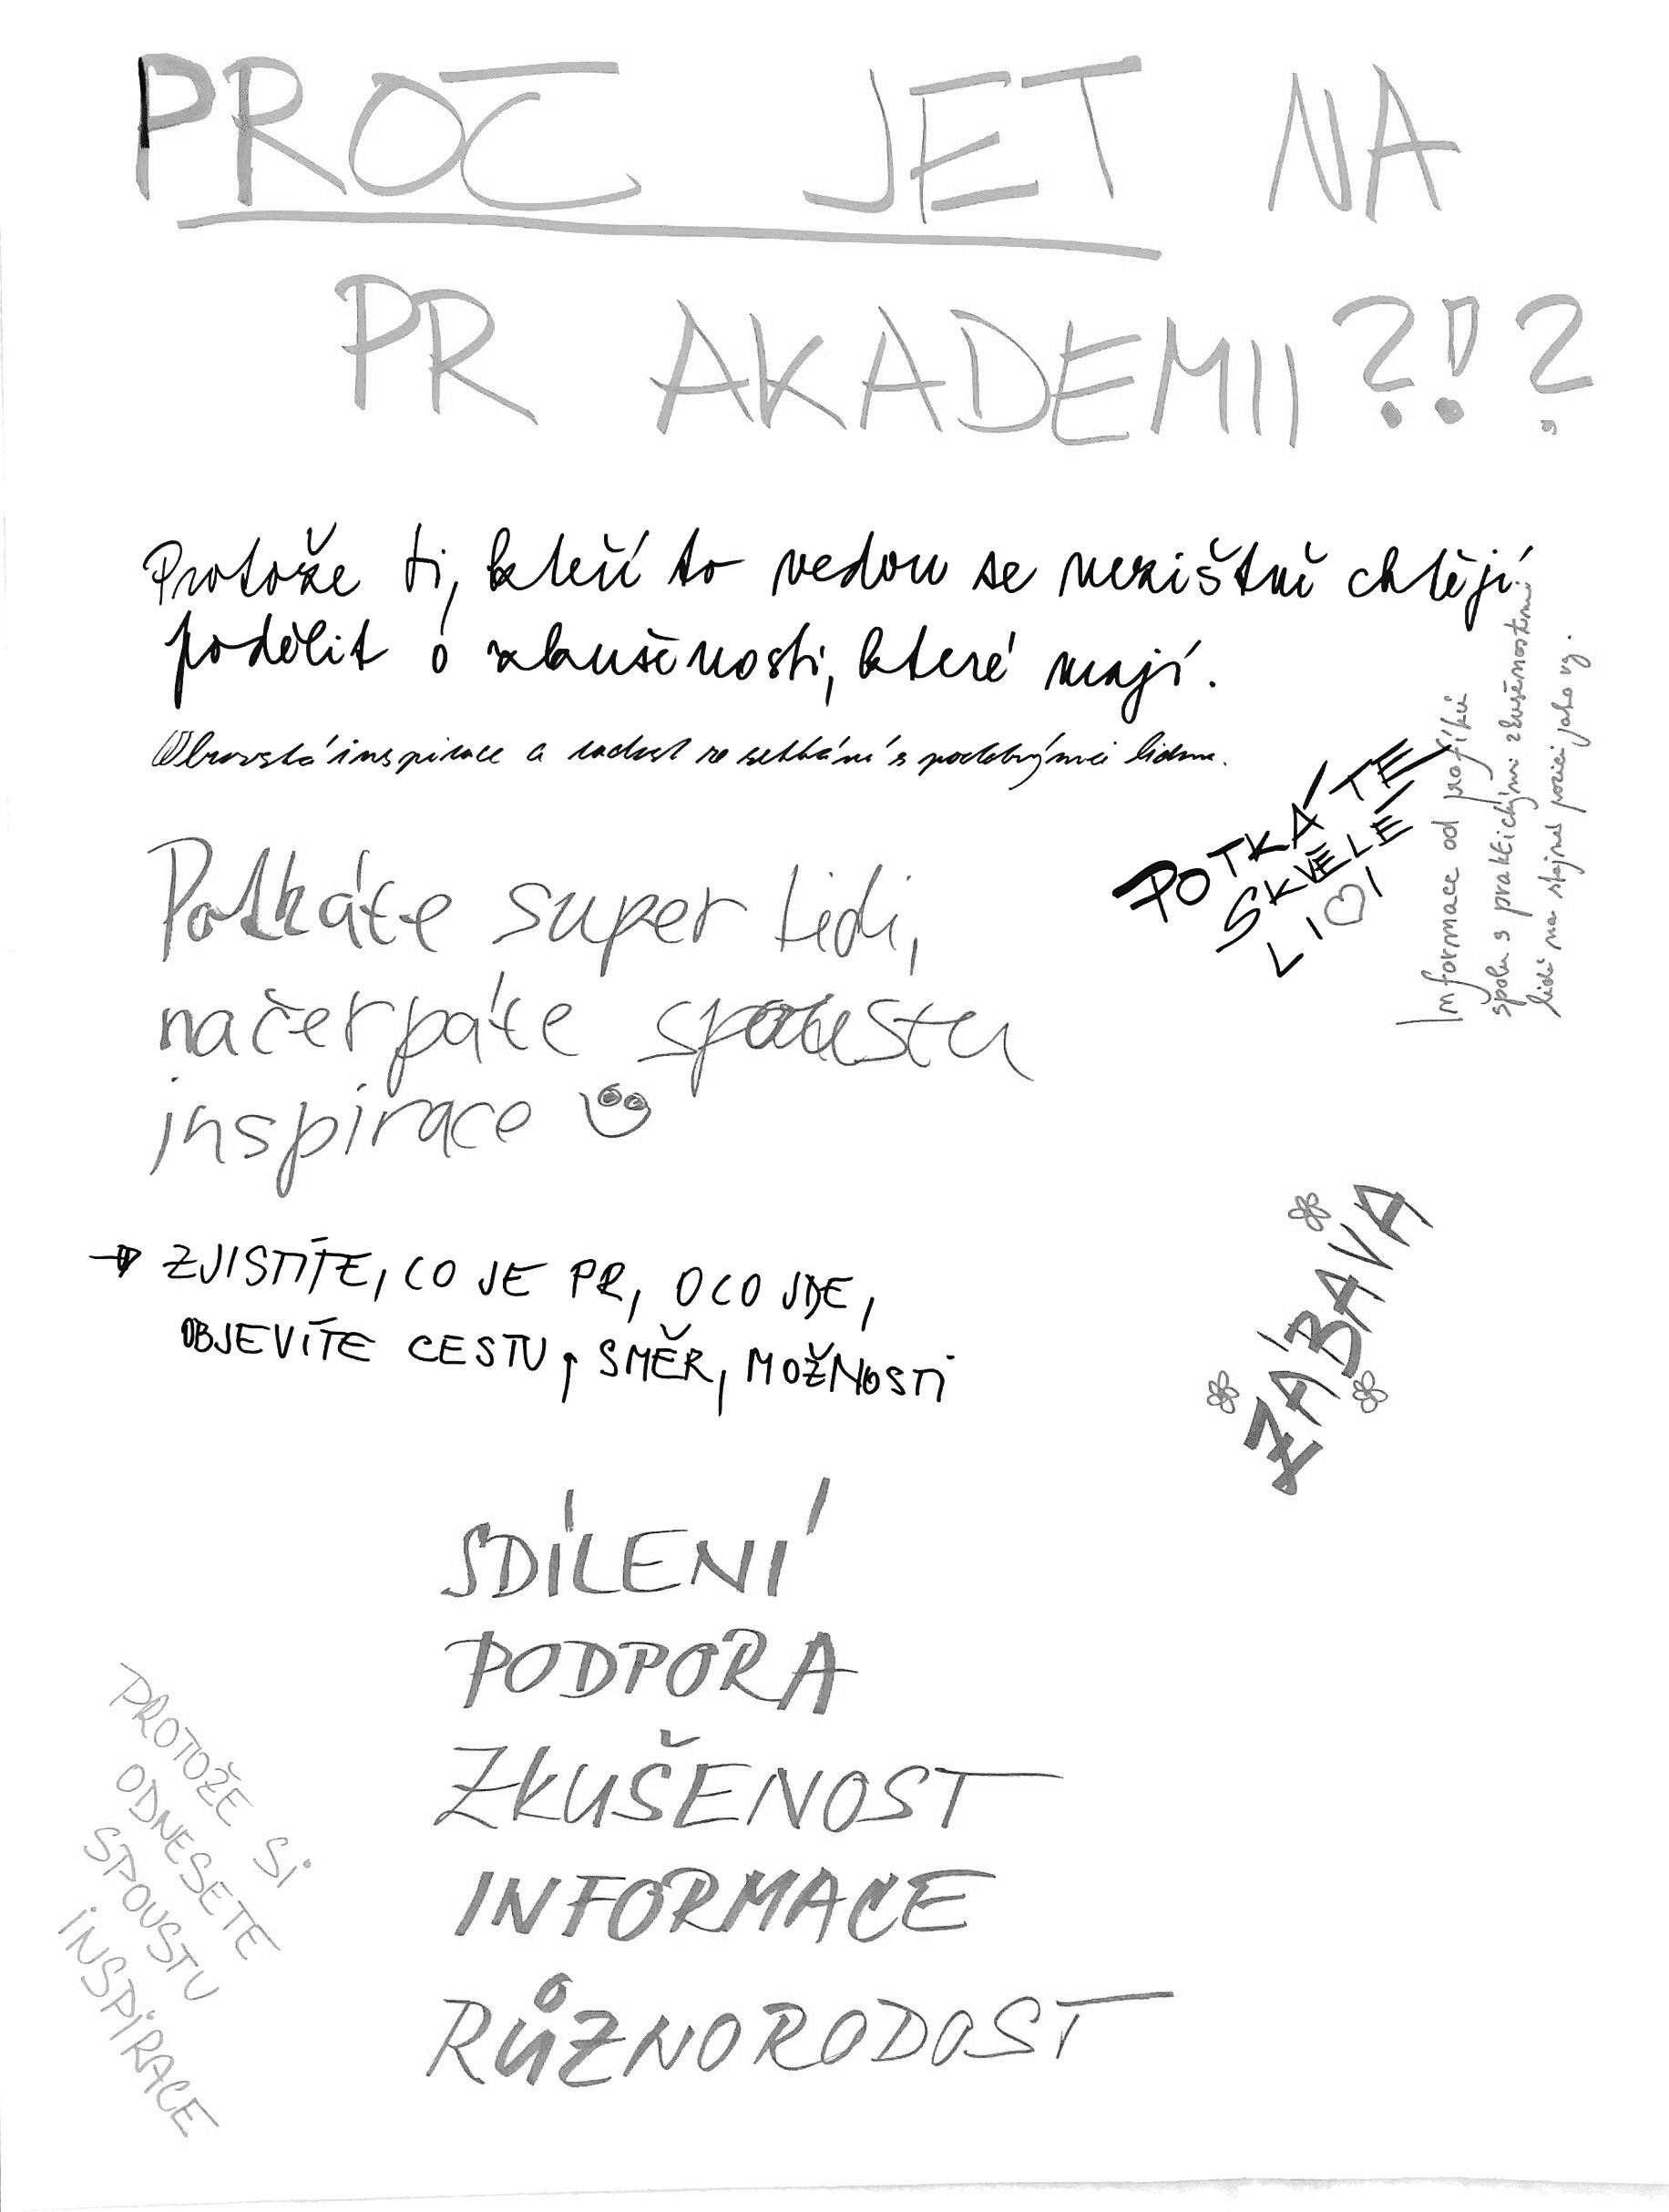 PROČ JET NA
PR AKADEMII?!?
Protože ti, kteří to vedou se nezištně chtějí
podělit o zkušenosti, které mají.
Obrovská inspirace a radost ze setkání s podobnými lidmi.
POTKÁTE
SKVĚLÉ
LIDI
Informace od profíků
spolu s praktickými zkušenostmi
lidí na stejné pozici jako vy.
Potkáte super lidi,
načerpáte spoustu
inspirace
→ ZJISTÍTE, CO JE PR, O CO JDE,
OBJEVÍTE CESTU, SMĚR, MOŽNOSTI
ZÁBAVA
SDÍLENÍ
PODPORA
ZKUŠENOST
INFORMACE
RŮZNORODOST
PROTOŽE SI
ODNESETE
SPOUSTU
INSPIRACE